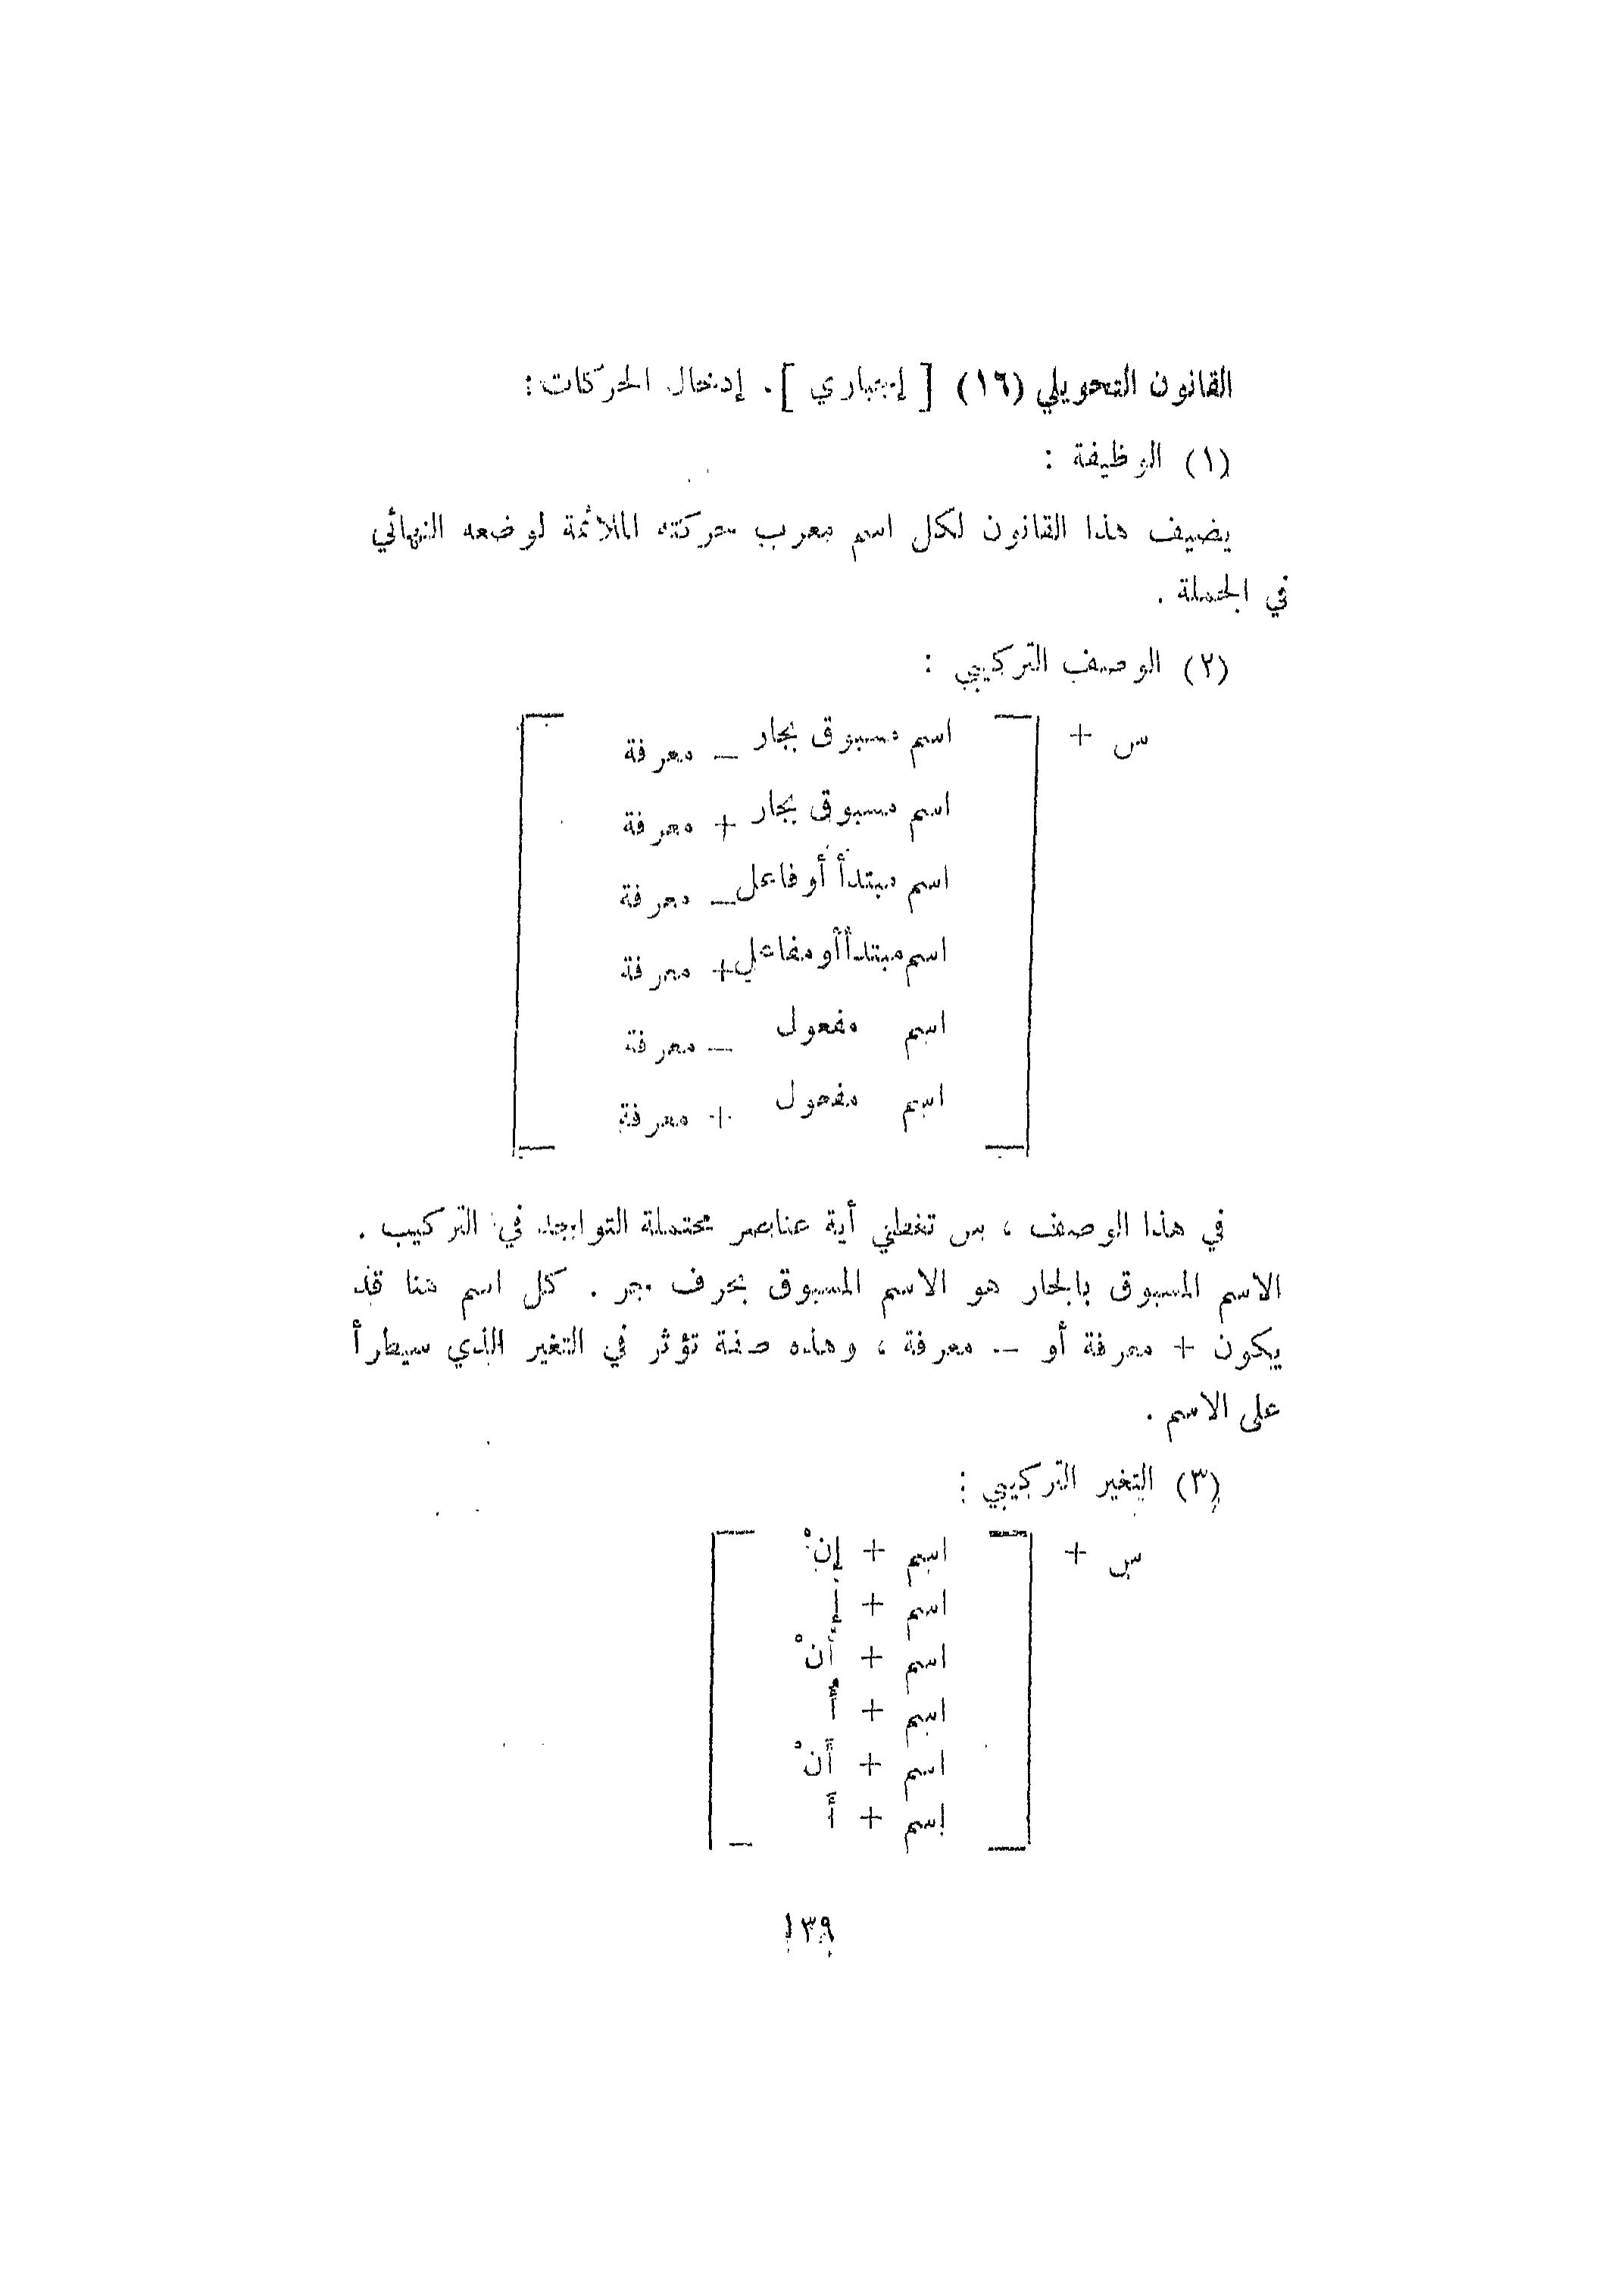 القانون التحويلي (١٦) [ إجباري ]. إدخال الحركات :
(١) الوظيفة :
يضيف هذا القانون لكل اسم معرب حركته الملائمة لوضعه النهائي
في الجملة .
(٢) الوصف التركيبي :
س + [ اسم مسبوق بجار − معرفة
اسم مسبوق بجار + معرفة
اسم مبتدأ أو فاعل − معرفة
اسم مبتدأ أو مفاعل + معرفة
اسم مفعول − معرفة
اسم مفعول + معرفة ]
في هذا الوصف ، س تغطي أية عناصر محتملة التواجد في التركيب .
الاسم المسبوق بالجار هو الاسم المسبوق بحرف جر . كل اسم هنا قد
يكون + معرفة أو − معرفة ، وهذه صفة تؤثر في التغير الذي سيطرأ
على الاسم .
(٣) التغير التركيبي :
س + [ اسم + إنْ
اسم + إ
اسم + أُنْ
اسم + أُ
اسم + أَنْ
اسم + أَ ]
١٣٩